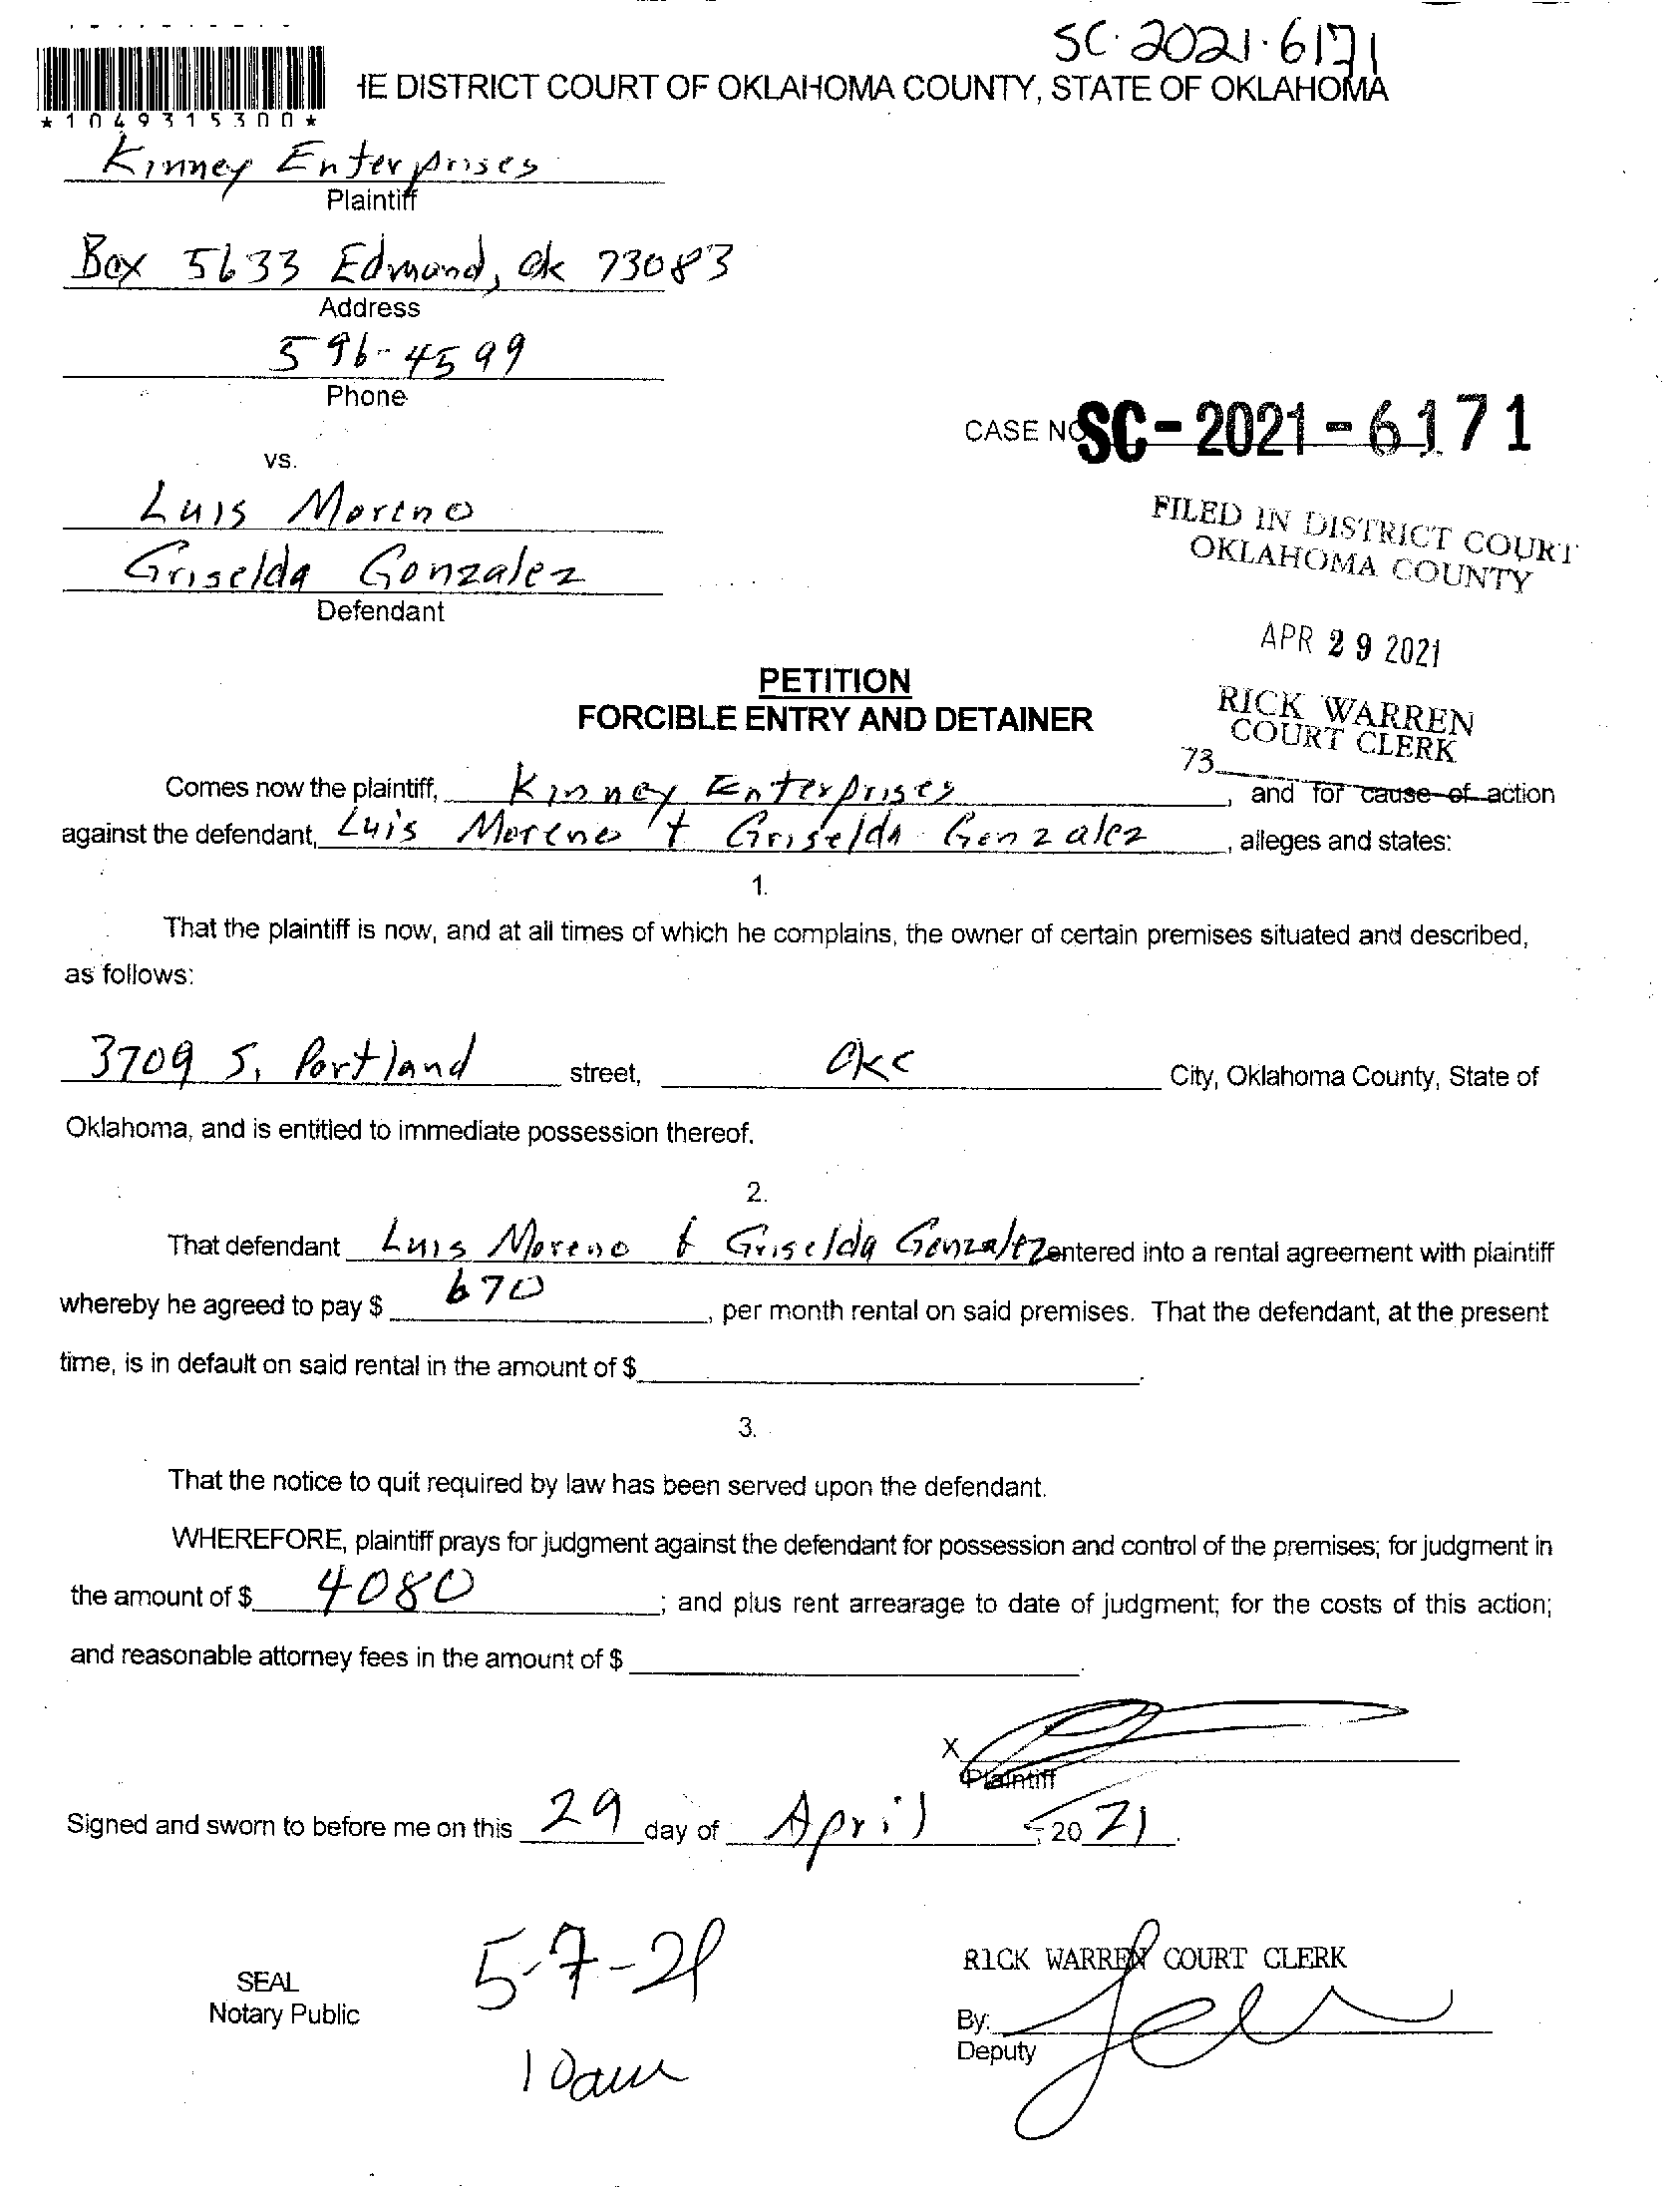 SC-2021-6171
HE DISTRICT COURT OF OKLAHOMA COUNTY, STATE OF OKLAHOMA
*1049315300*
Kinney Enterprises
Plaintiff
Box 5633 Edmond, Ok 73083
Address
596-4599
Phone
CASE NO SC-2021-6171
vs.
Luis Moreno
Griselda Gonzalez
Defendant
FILED IN DISTRICT COURT
OKLAHOMA COUNTY
APR 29 2021
RICK WARREN
COURT CLERK
73
PETITION
FORCIBLE ENTRY AND DETAINER
Comes now the plaintiff, Kinney Enterprises, and for cause of action
against the defendant, Luis Moreno + Griselda Gonzalez, alleges and states:
1.
That the plaintiff is now, and at all times of which he complains, the owner of certain premises situated and described,
as follows:
3709 S. Portland street, Okc City, Oklahoma County, State of
Oklahoma, and is entitled to immediate possession thereof.
2.
That defendant Luis Moreno & Griselda Gonzalez entered into a rental agreement with plaintiff
whereby he agreed to pay $ 670, per month rental on said premises. That the defendant, at the present
time, is in default on said rental in the amount of $.
3.
That the notice to quit required by law has been served upon the defendant.
WHEREFORE, plaintiff prays for judgment against the defendant for possession and control of the premises; for judgment in
the amount of $ 4080; and plus rent arrearage to date of judgment; for the costs of this action;
and reasonable attorney fees in the amount of $.
X
Plaintiff
Signed and sworn to before me on this 29 day of April, 2021.
5-7-21
10am
SEAL
Notary Public
RICK WARREN COURT CLERK
By:
Deputy